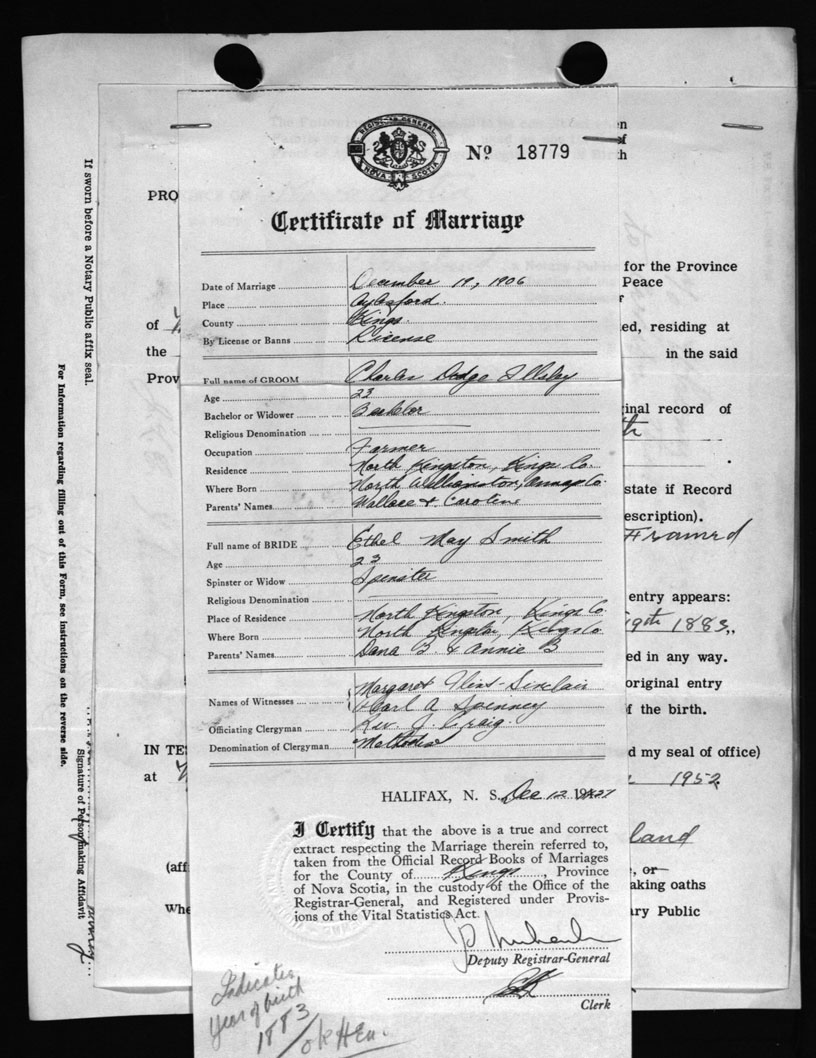 REGISTRAR GENERAL
NOVA SCOTIA
Nº 18779
Certificate of Marriage
Date of Marriage December 19, 1906
Place Aylesford.
County Kings.
By License or Banns License
Full name of GROOM Charles Dodge Illsley
Age 23
Bachelor or Widower Bachelor
Religious Denomination
Occupation Farmer
Residence North Kingston, Kings Co.
Where Born North Williamston, Annap Co.
Parents' Names Wallace & Caroline
Full name of BRIDE Ethel May Smith
Age 23
Spinster or Widow Spinster
Religious Denomination
Place of Residence North Kingston, Kings Co
Where Born North Kingston, Kings Co
Parents' Names Dana B. & Annie B
Names of Witnesses Margaret Sinclair
Carl A Spinney
Officiating Clergyman Rev. J. Craig.
Denomination of Clergyman Methodist
HALIFAX, N. S. Dec 12
I Certify that the above is a true and correct
extract respecting the Marriage therein referred to,
taken from the Official Record Books of Marriages
for the County of Kings, Province
of Nova Scotia, in the custody of the Office of the
Registrar-General, and Registered under Provis-
ions of the Vital Statistics Act.
Deputy Registrar-General
Clerk
Indicates
year of birth
1883
OK
If sworn before a Notary Public affix seal.
For Information regarding filling out of this Form, see instructions on the reverse side.
Signature of Person making Affidavit
PRO
of
the
Prov
IN TE
at
(aff
Whe
for the Province
Peace
ed, residing at
in the said
ginal record of
th
state if Record
escription).
Framed
entry appears:
19th 1883,
ed in any way.
original entry
f the birth.
d my seal of office)
1952
land
, or
aking oaths
ry Public